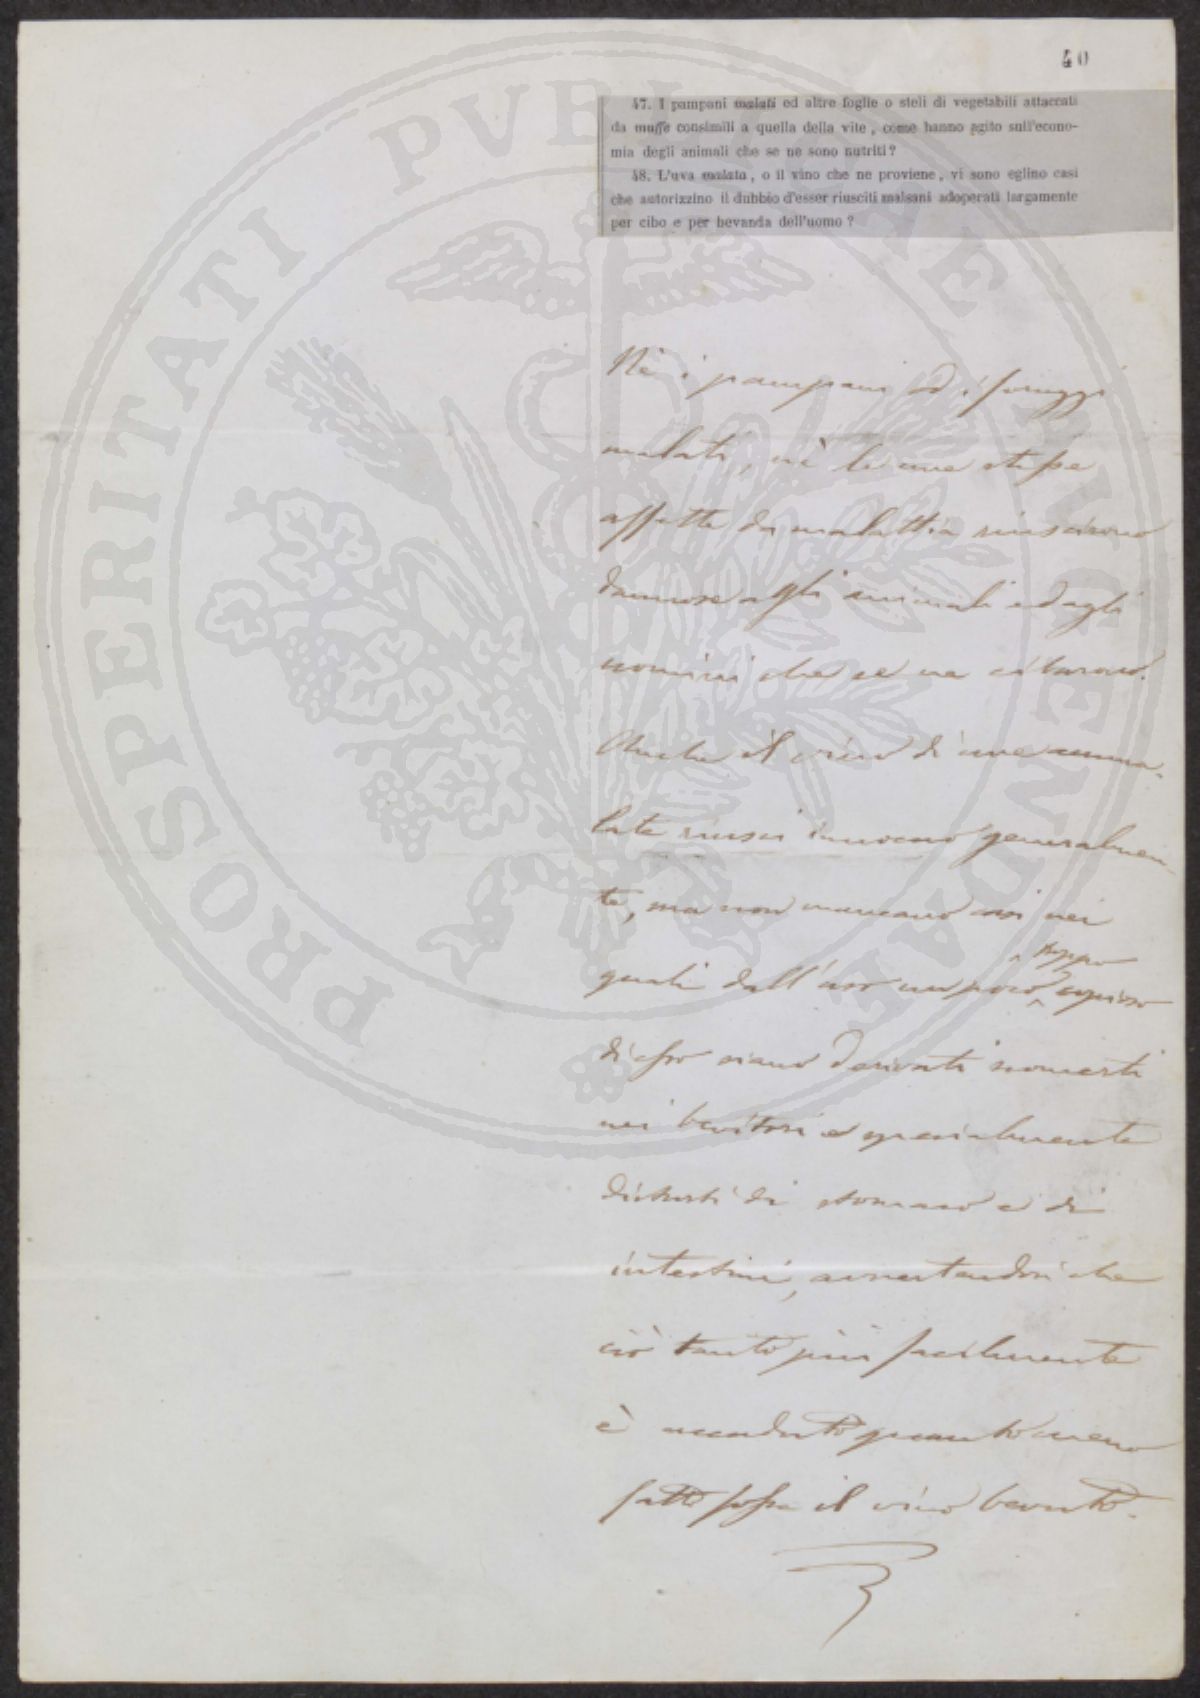 40
47. I pampani malati ed altre foglie o steli di vegetabili attaccati
da muffe consimili a quella della vite, come hanno agito sull'econo-
mia degli animali che se ne sono nutriti?
48. L'uva malata, o il vino che ne proviene, vi sono eglino casi
che autorizzino il dubbio d'esser riusciti malsani adoperati largamente
per cibo e per bevanda dell'uomo?
Nè i pampani ed i foraggi
malati, nè le uve stesse
affette da malattia riuscirono
dannose agli animali ed agli
uomini che se ne cibarono.
Anche il vino di uve amma-
late riuscì innocuo generalmen
te, ma non mancano casi nei
quali dall'uso un poco troppo copioso
di esso siano derivati sconcerti
nei bevitori e specialmente
disturbi di stomaco e di
intestini, avvertendosi che
ciò tanto più facilmente
è accaduto quanto meno
fatto fosse il vino bevuto.
PROSPERITATI PUBLICAE AUGENDAE